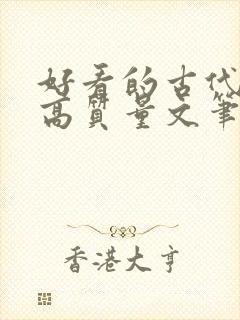 好看的古代
高质量文笔
香港大亨